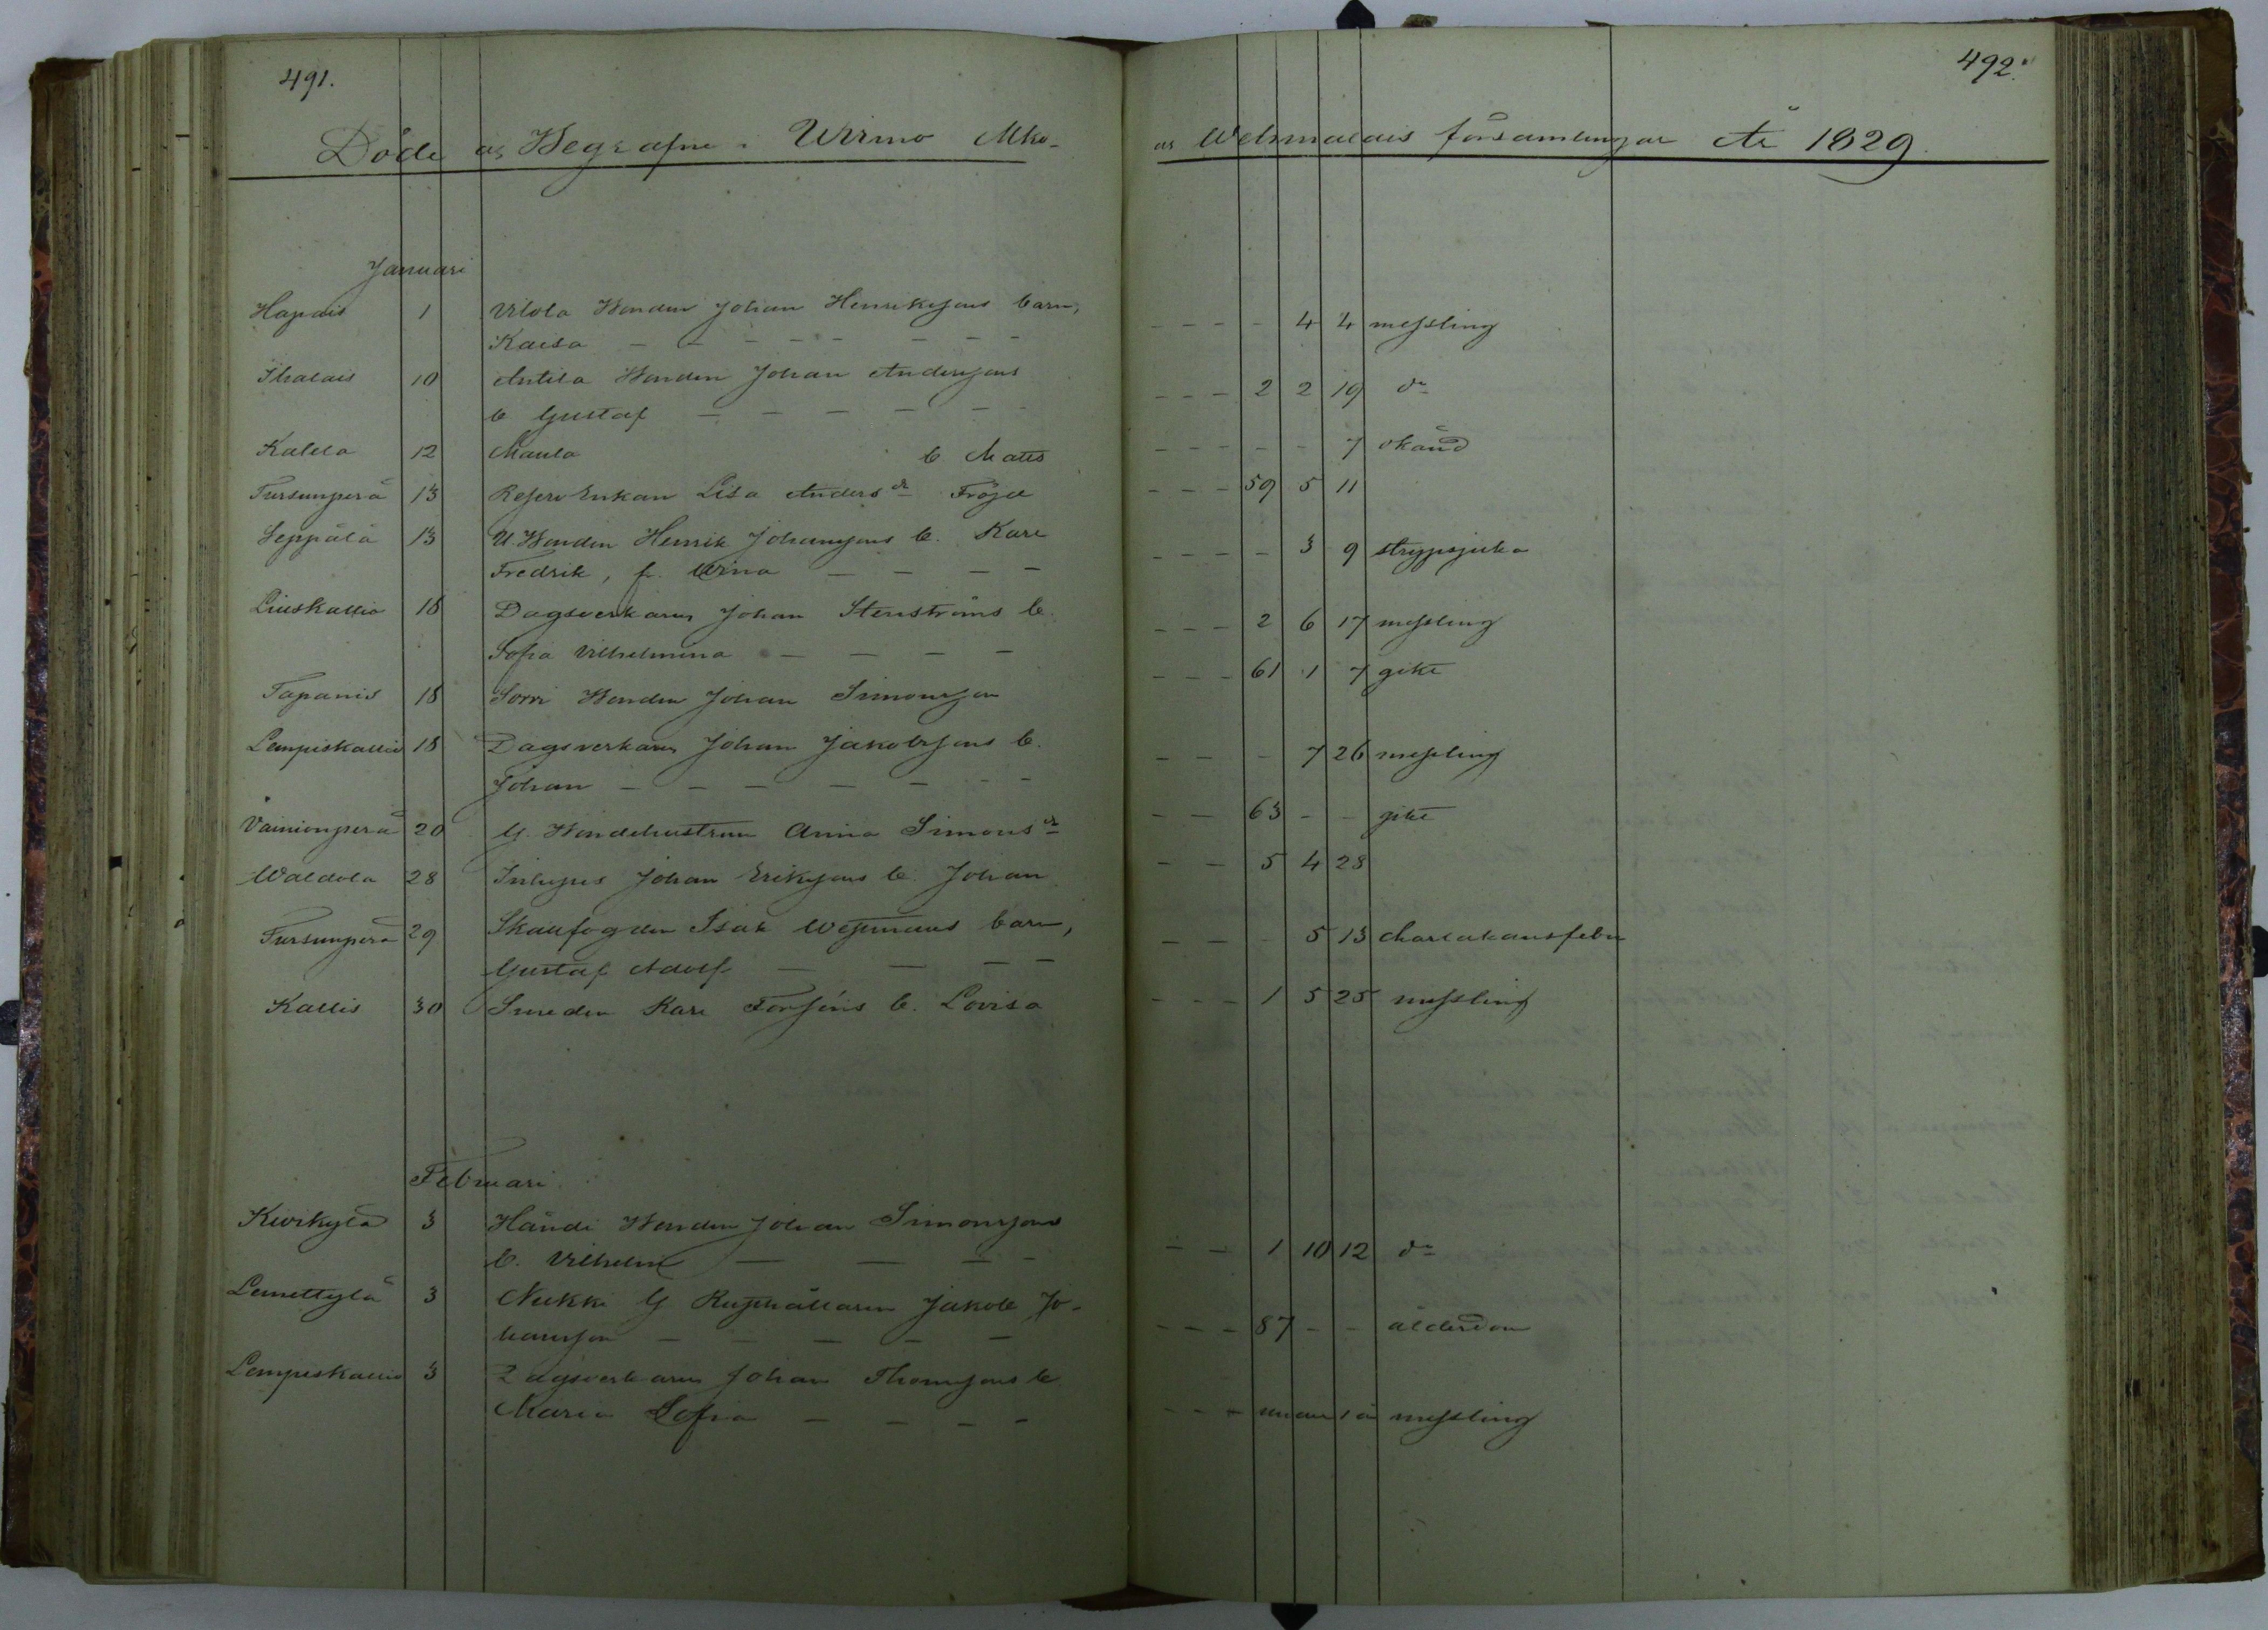 491.
Döde o Begrafne i Wirmo Mko-
Januari
Hapais 1 Ulola Bonden Johan Henrikssons barn,
Kaisa - - - - - - - -
Ihalais 10 Antila Bonden Johan Anderssons
b Gustaf - - - - - -
Kallela 12 Maula b Matts
Tursunperä 13 Reserv Enkan Lisa Andersdr Fröjd
Seppälä 13 U. Bonden Henrik Johanssons b. Karl
Fredrik, fr. - - - -
Liuskallio 18 Dagsverkaren Johan Stenströms b.
Sofia Vilhelmina - - - -
Tapanis 18 Sorri Bonden Johan Simonsson
Lempiskallio 18 Dagsverkaren Johan Jakobssons b.
Johan - - - - - - -
Vainionperä 20 G. Bondehustrun Anna Simonsdr
Waldola 28 Inhyses Johan Erikssons b. Johan
Tursunperä 29 Skallfogden Isak barn,
Gustaf Adolf - - - -
Kallis 30 Smeden Karl Forséns b. Lovisa
Februari
Kivikylä 3 Händi Bonden Johan Simonssons
b. Vilhelm - - - -
Lemettylä 3 Nukki G Jakob Jo-
hansson - - - - -
Lempiskallio 3 Dagsverkaren Johan Thomssons b
Maria Sofia - - - -
492.
o Wehmalais församlingar År 1829.
- - - - 4 4 messling
- - - 2 2 19 do
- - - - - 7 okänd
- - - 59 5 11
- - - - 3 9 strypsjuka
- - - 2 6 17 messling
- - - 61 1 7 gikt
- - - 7 26 messling
- - 63 - - gikt
- - 5 4 28
- - - 5 13 charlakansfeber
- - - 1 5 25 messling
- - 1 10 12 do
- - - 87 - - ålderdom
- - - 1 å messling